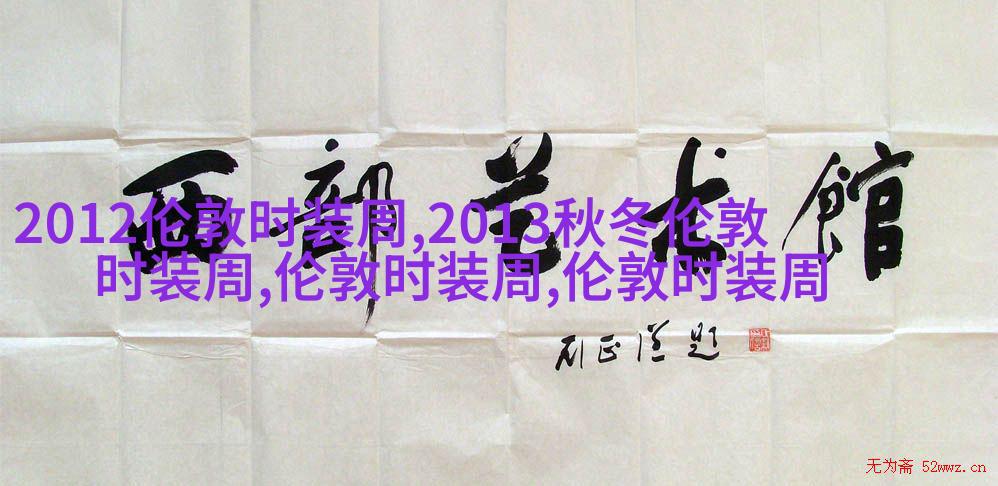 西部艺术馆
2012伦敦时装周,2013秋冬伦敦
时装周,伦敦时装周,伦敦时装周
题
无为斋 52wwz.cn